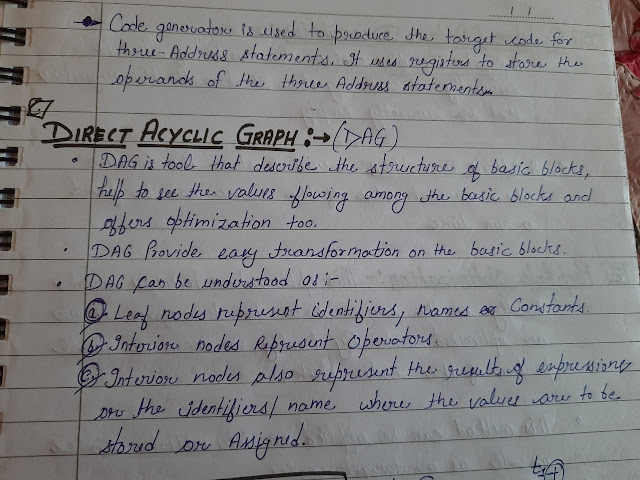 → Code generator is used to produce the target code for
three-Address statements. It uses registers to store the
operands of the three Address statements.
DIRECT ACYCLIC GRAPH :→ (DAG)
• DAG is tool that describe the structure of basic blocks,
help to see the values flowing among the basic blocks and
offers optimization too.
• DAG Provide easy transformation on the basic blocks.
• DAG can be understood as :-
(a) Leaf nodes represent identifiers, names or Constants
(b) Interior nodes Represent Operators.
(c) Interior nodes also represent the results of expressions
or the identifiers/name where the values are to be
stored or Assigned.